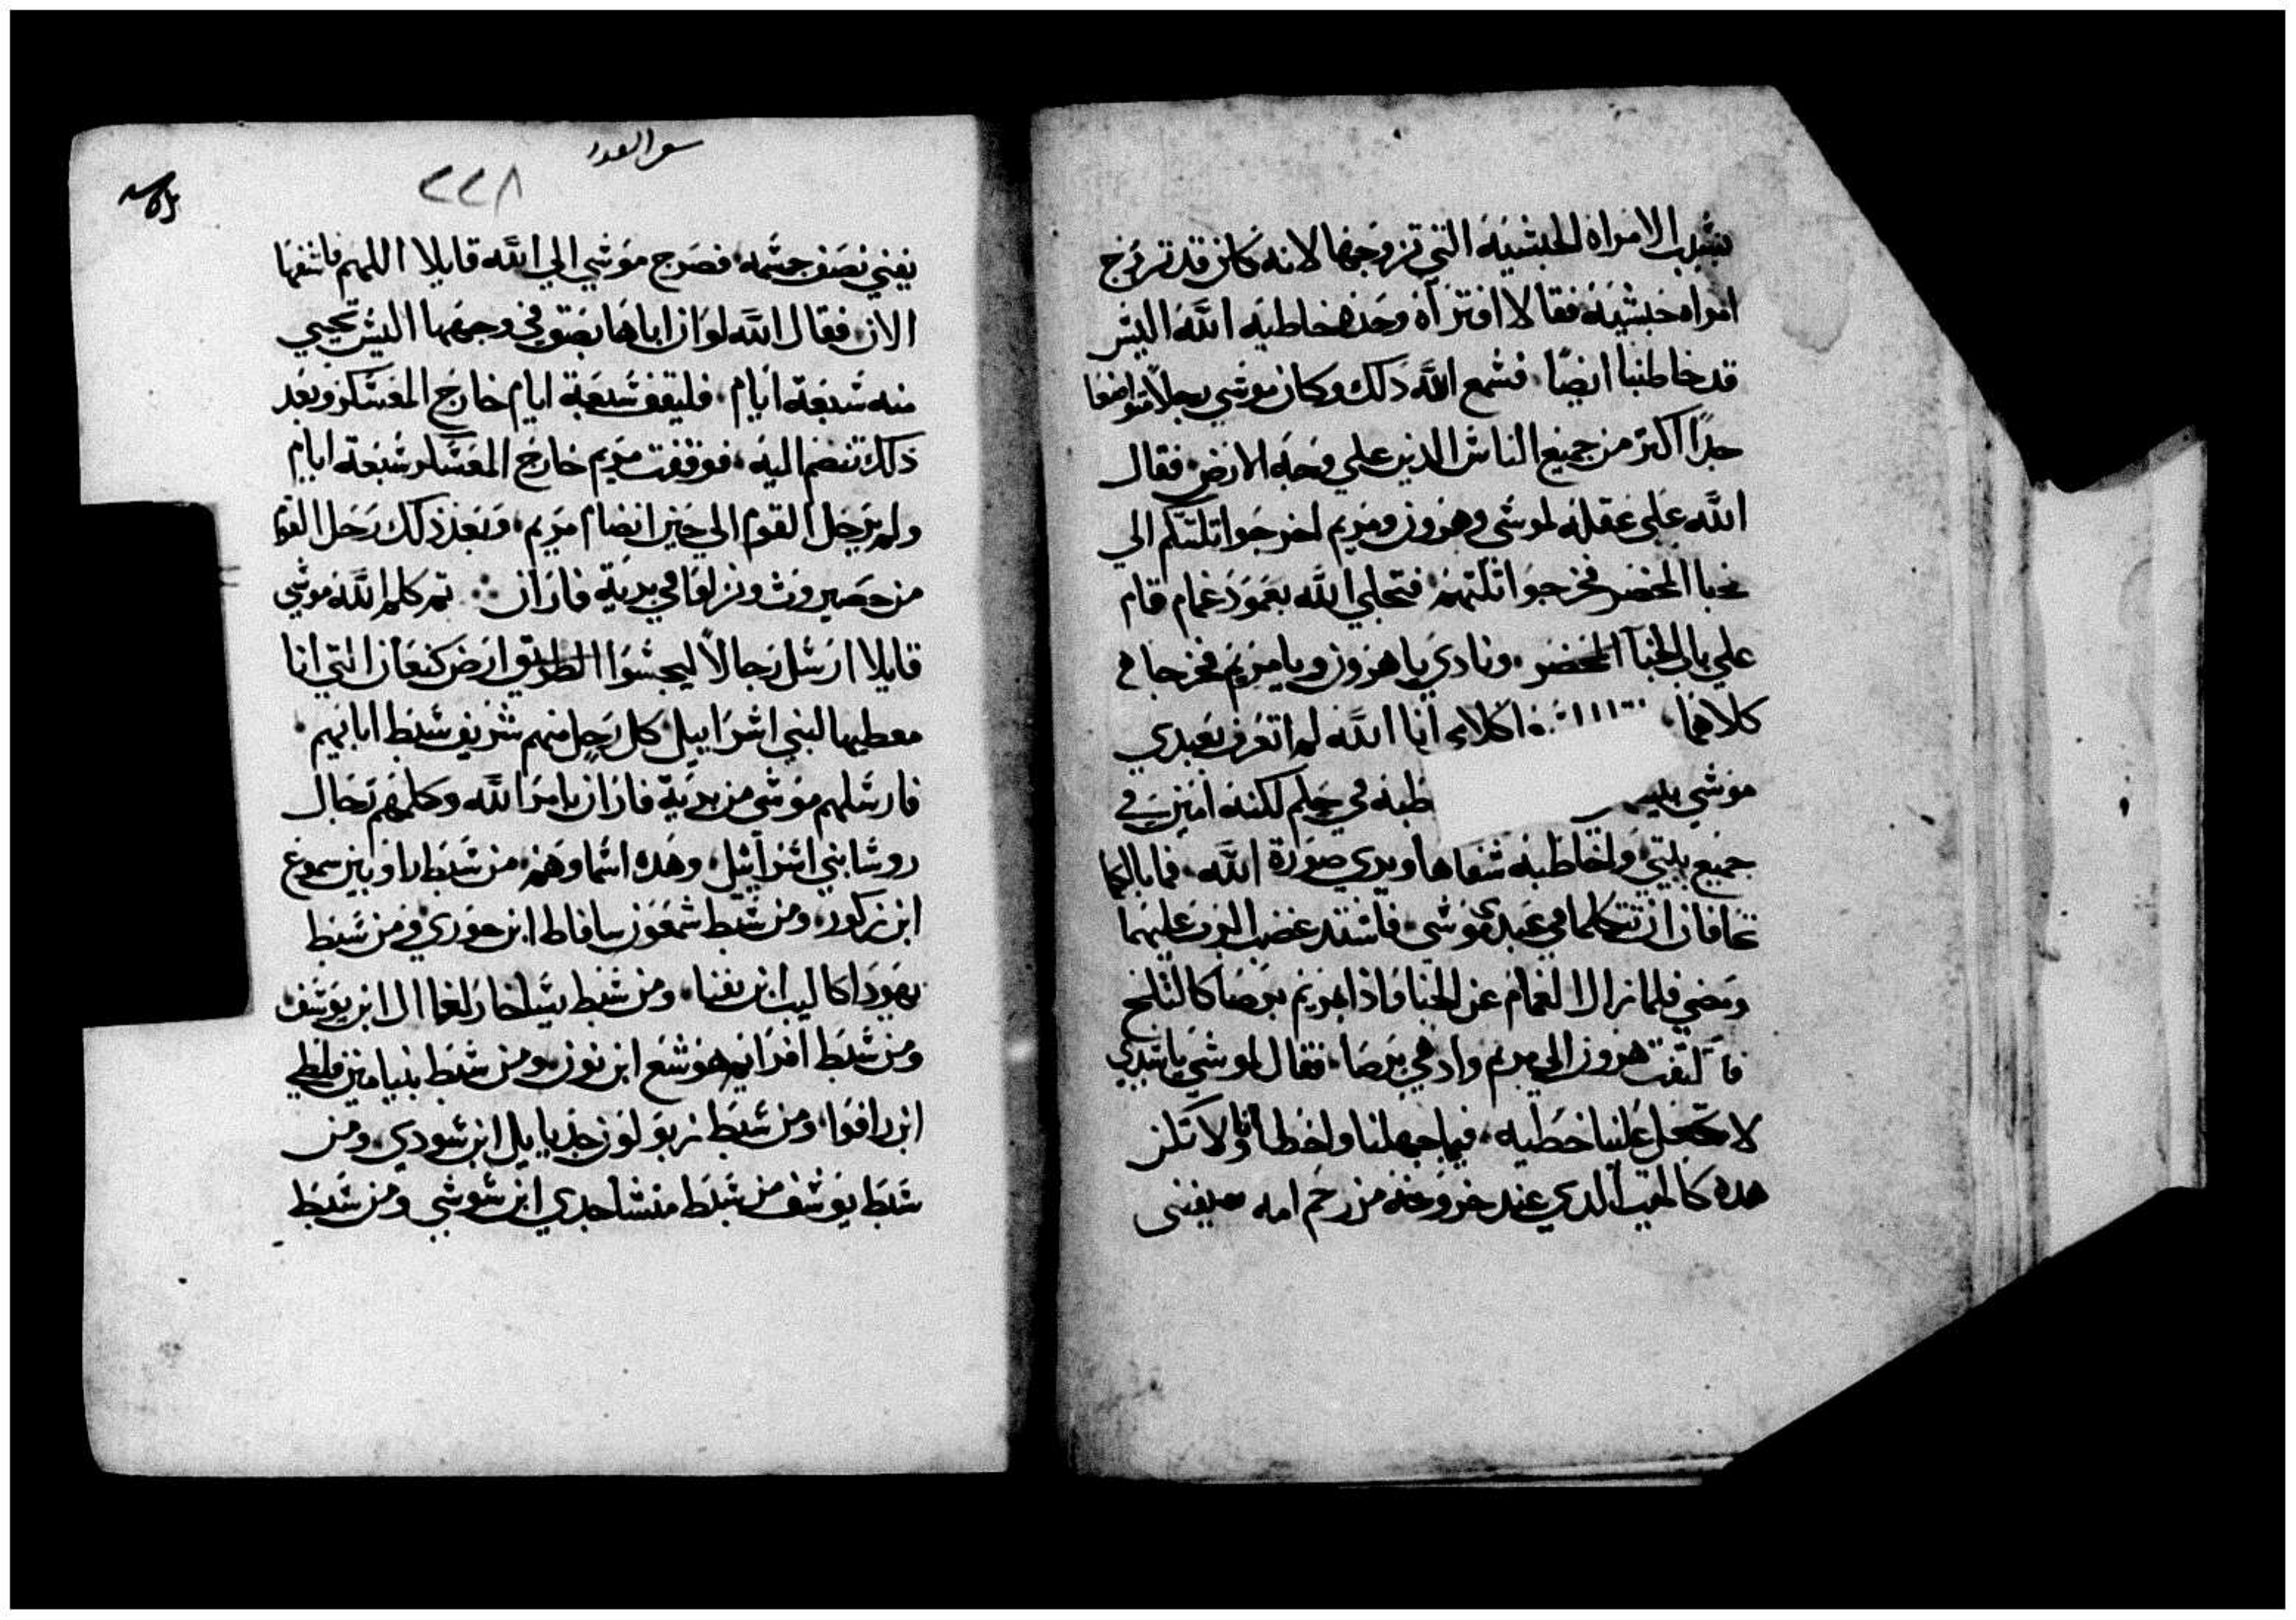 بسبب الامراه الحبشيه التي تزوجها لانه كان قد تزوج
امراه حبشيه فقالا افتراه وحده خاطبه الله اليس
قد خاطبنا ايضًا فسمع الله ذلك وكان موسي رجلاً متواضعا
جدًا اكتر من جميع الناس الدين علي وجه الارض فقال
الله علي غفله لموسي وهرون ومريم اخرجوا تلتتكم الي
خبا المحضر فخرجوا تلتهم فتجلي الله بعمود غمام قام
علي باب الخبآ المحضر ونادي يا هرون ويا مريم فخرجا
كلاهما كلامي انا الله لم اتعرف بعبدي
موسي طبه في حلم لكنه امين في
جميع بيتي واخاطبه شفاها ويري صورة الله فما بالكما
تخافان ان تتكلما في عبدي موسي فاشتد غضب الرب عليهما
ومضي فلما زال الغمام عن الخبا فاذا مريم برصا كالتلج
فالتفت هرون الي مريم واد هي برصا فقال لموسي يا سيدي
لا تجعل علينا خطيه فيما جهلنا واخطانا ولا تكن
هده كالميت الدي عند خروجه من رحم امه يفني
سفر العدد
٢٢٨
يفني نصف جسمه فصرخ موسي الي الله قايلا اللهم فاشفها
الان فقال الله لو ان اباها بصق في وجهها اليس تحيي
منه سبعة ايام فليقف سبعة ايام خارج المعسكر وبعد
ذلك تنضم اليه فوقفت مريم خارج المعسكر سبعة ايام
ولم يرحل القوم الي حين انضام مريم وبعد ذلك رحل القوم
من حصيروت ونزلوا في برية فاران تم كلم الله موسي
قايلا ارسل رجالاً ليجسوا الطريق ارض كنعان التي انا
معطيها لبني اسراييل كل رجل منهم شريف سبط ابايهم
فارسلهم موسي من برية فاران بامر الله وكلهم رجال
روسا بني اسراييل وهده اسماوهم من سبط راوبين سموع
ابن زكور ومن سبط شمعون سافاط ابن حوري ومن سبط
يهودا كاليب ابن يفنا ومن سبط يساخار ايغاال ابن يوسف
ومن سبط افرايم هوشع ابن نون ومن سبط بنيامين فلطي
ابن رافوا ومن سبط زبولون جديايل ابن سودي ومن
سبط يوسف من سبط منشا جدي ابن سوسي ومن سبط